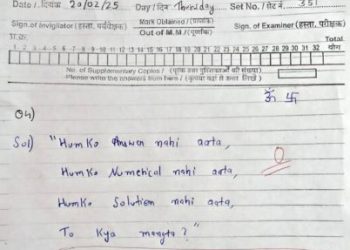 Date / दिनांक 20/02/25 Day / दिन Thursday Set No. / सेट नं. 351
Sign.of Invigilator (हस्ता. पर्यवेक्षक) Mark Obtained / (प्राप्तांक) Sign. of Examiner (हस्ता. परीक्षक)
Out of M.M./(पूर्णांक)
प्र.क्र. Total
1 2 3 4 5 6 7 8 9 10 11 12 13 14 15 16 17 18 19 20 21 22 23 24 25 26 27 28 29 30 31 32 योग
No. of Supplementary Copies / (पूरक उत्तर पुस्तिकाओं की संख्या)
Please write the answers from here / (कृपया यहां से उत्तर लिखें)
ॐ 卐
Q4)
Sol) "Humko Answer nahi aata,
0
Humko Numerical nahi aata,
Humko Solution nahi aata,
To Kya mangta?"